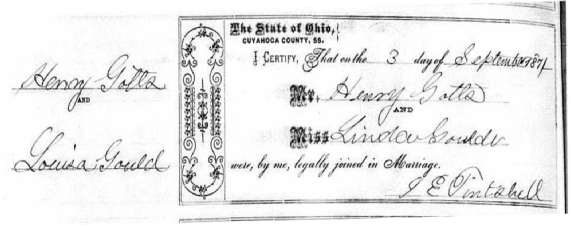 Henry Gotts
AND
Louisa Gould
The State of Ohio,
CUYAHOGA COUNTY, SS.
I CERTIFY, That on the 3 day of September 1871
Mr. Henry Gotts
AND
Miss Linda Goulds
were, by me, legally joined in Marriage.
J E